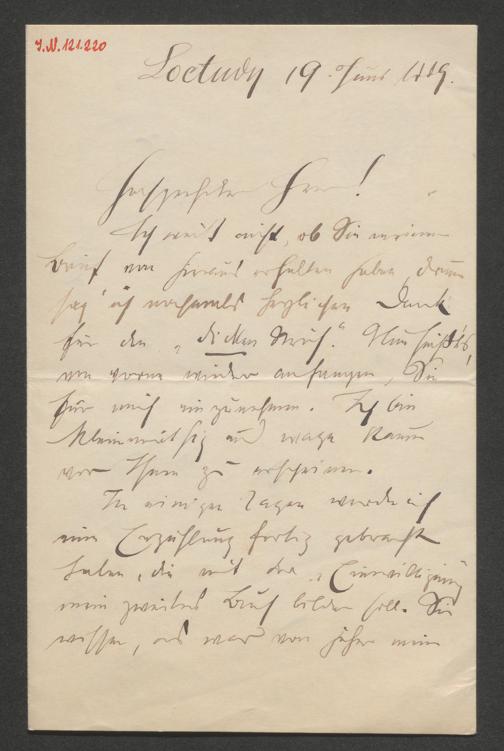 J.N. 121.220
Loctudy 19. Juni 1889.
Hochgeehrter Herr!
Ich weiß nicht, ob Sie meinen
Brief von hier erhalten haben, drum
sag' ich nochmals herzlichen Dank
für den „dicken Muth“. Nun heißt's,
von vorne wieder anfangen, Sie
für mich einzunehmen. Ich bin
kleinmüthig und wage kaum
vor Ihnen zu erscheinen.
In einigen Tagen werde ich
eine Erzählung fertig gebracht
haben, die mit der „Einwilligung
mein zweites Buch bilden soll. Sie
wissen, es war von jeher mein